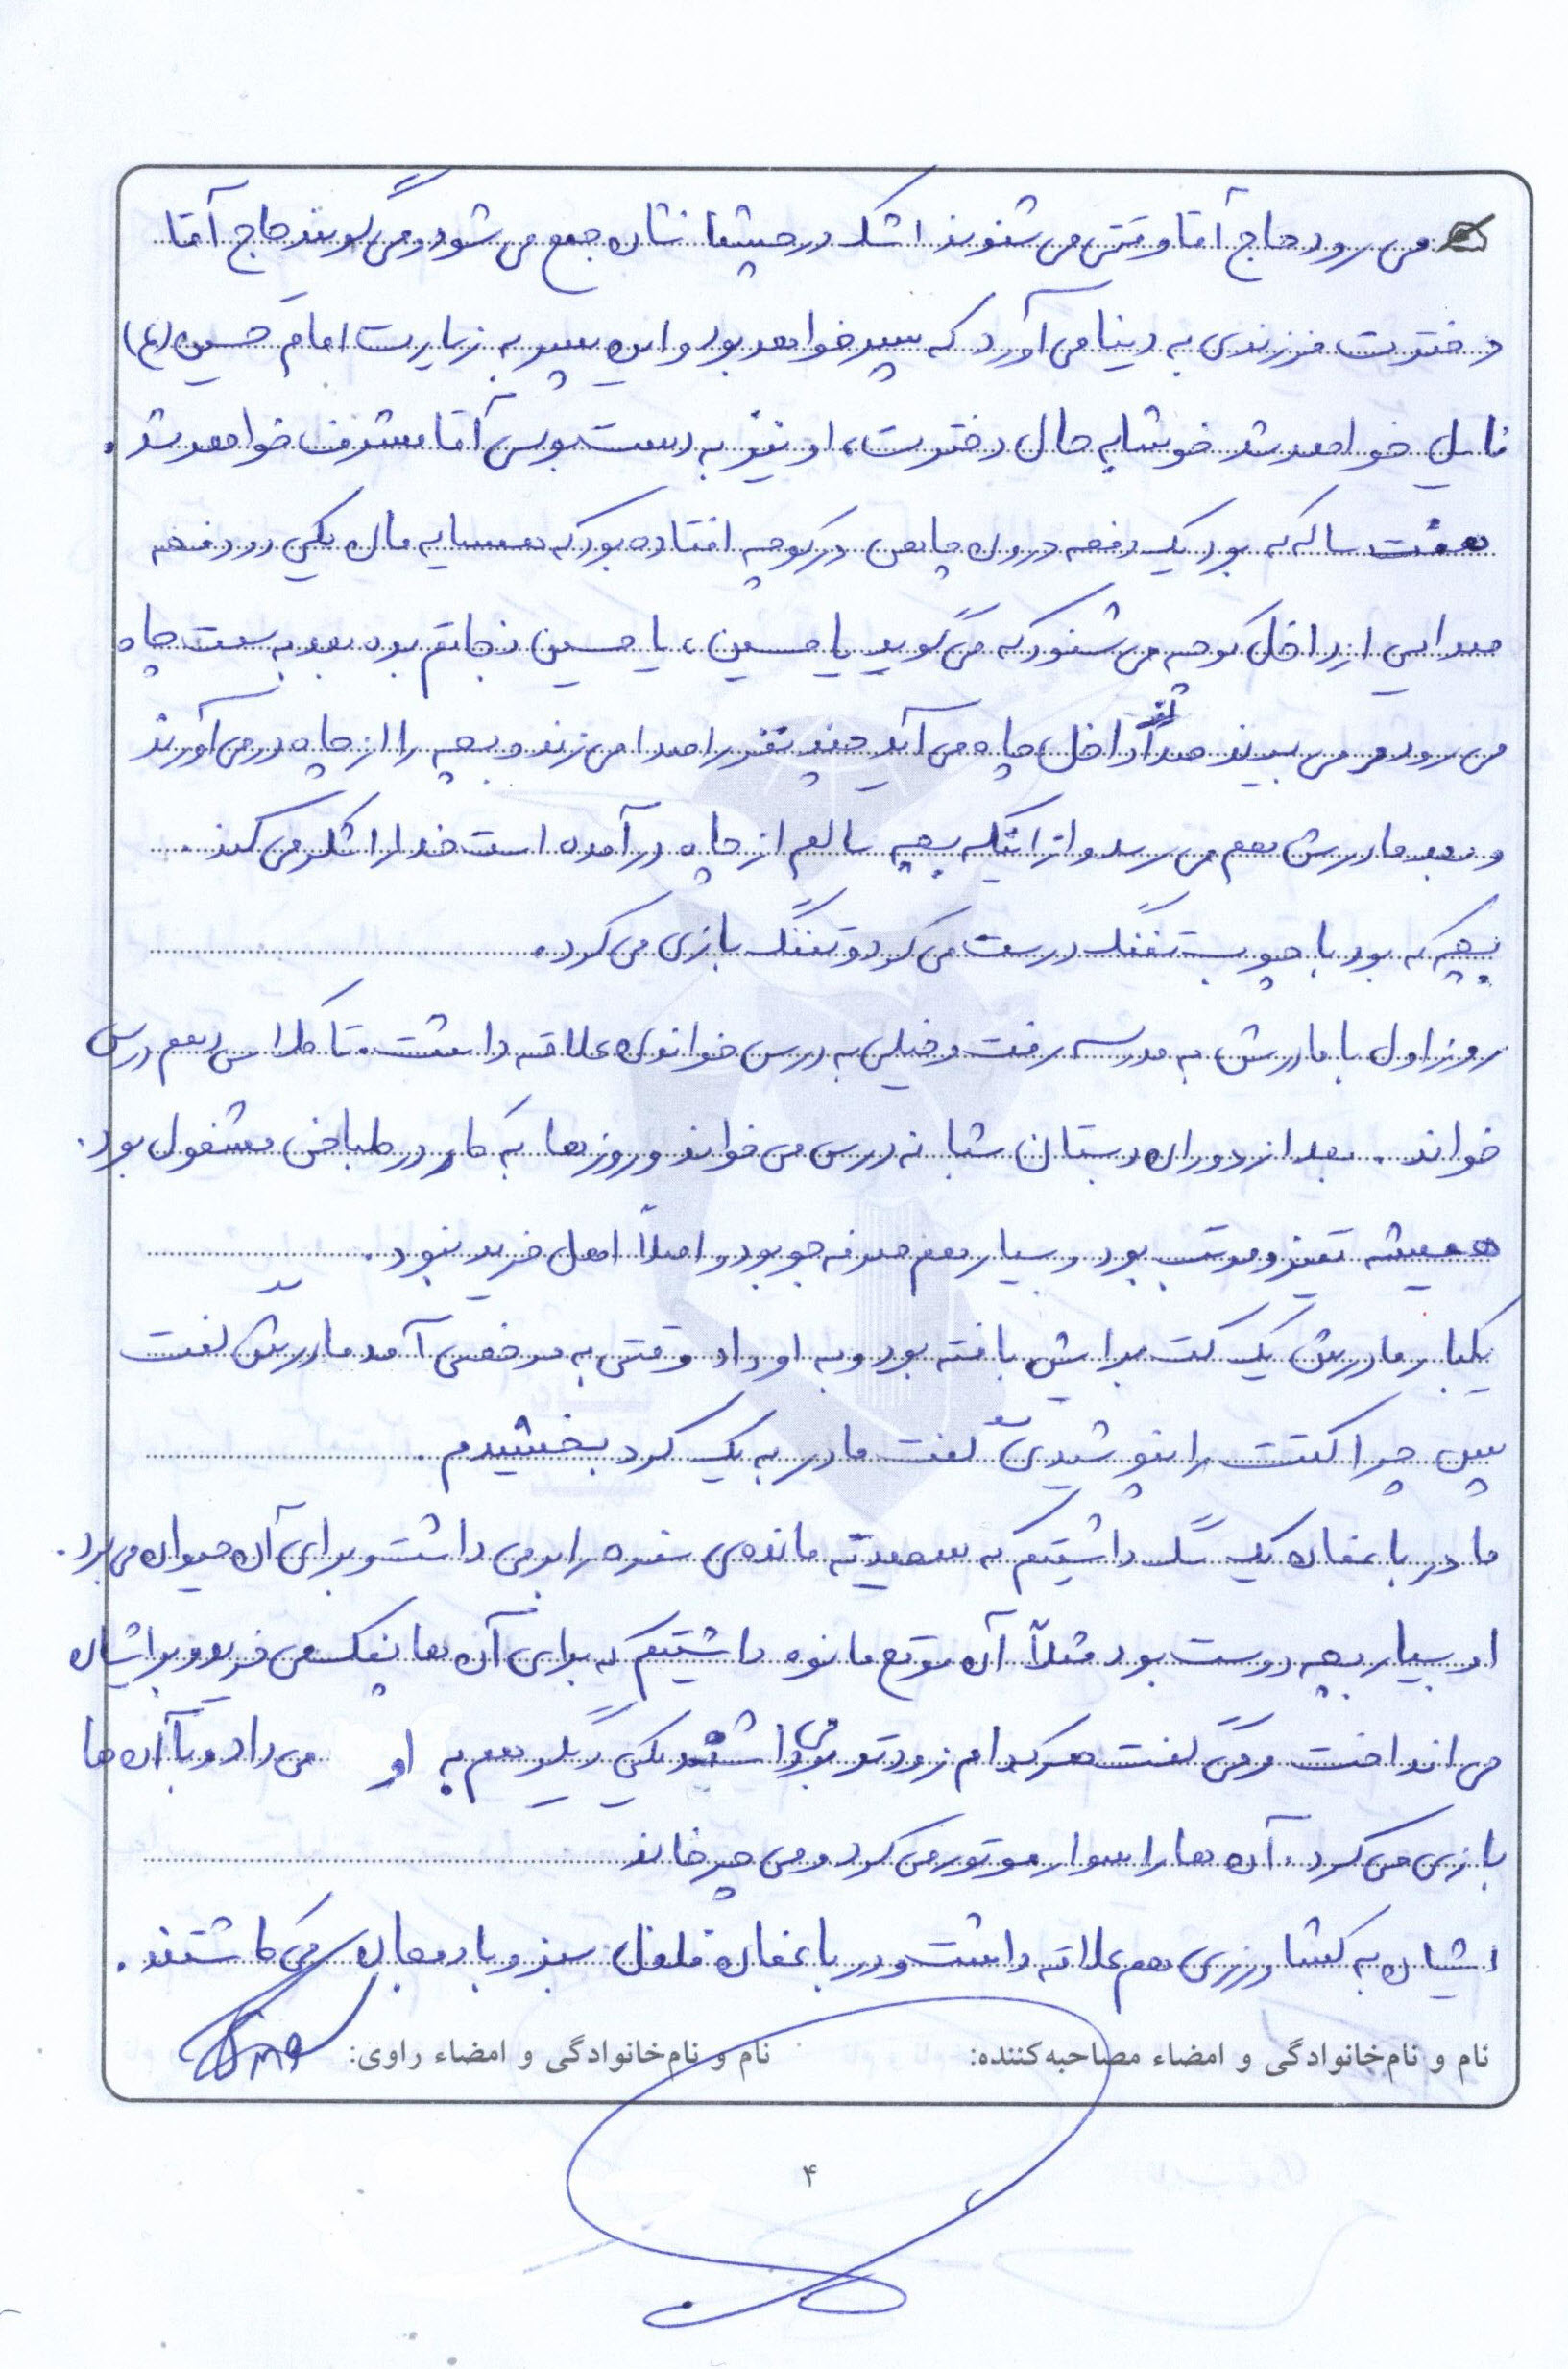 می رود حاج آقا وقتی می شنوند اشک در چشمانشان جمع می شود و می گویند حاج آقا
دخترت فرزندی به دنیا می آورد که پسر خواهد بود و این پسر به زیارت امام حسین (ع)
نایل خواهد شد خوشا به حال دخترت، او نیز به دست بوس آقا مشرف خواهد شد.
هفت ساله که بود یک دفعه درون چاهی در کوچه افتاده بود که همسایه مان یکی در دفعه
صدایی از داخل کوچه می شنود که می گوید یا حسین، یا حسین نجاتم بده بعد به سمت چاه
می رود و می بیند صدا از داخل چاه می آید چند نفر را صدا می زند و بچه را از چاه در می آورند
و بعد مادرش هم می رسد و از اینکه بچه سالم از چاه در آمده است خدا را شکر می کند.
بچه که بود با چوب تفنگ درست می کرد و تفنگ بازی می کرد.
روز اول با مادرش به مدرسه رفت و خیلی به درس خواندن علاقه داشت. تا کلاس دهم درس
خواند. بعد از دوران دبستان شبانه درس می خواند و روزها به کار در طباخی مشغول بود.
همیشه تمیز و مرتب بود و بسیار هم صرفه جو بود و اصلاً اهل خرید نبود.
یکبار مادرش یک کت برایش بافته بود و به او داد وقتی به مرخصی آمد مادرش گفت
پس چرا کتت را نپوشیدی؟ گفت مادر به یک کرد بخشیدم.
ما در باغمان یک سگ داشتیم که سعید ته مانده ی سفره را بر می داشت و برای آن حیوان می برد.
او بسیار بچه دوست بود مثلاً آن موقع ما نوه داشتیم که برای آن ها پفک می خرید و برایشان
می انداخت و می گفت هر کدام زودتر بر می داشتند یکی دیگر هم به او می داد و با آن ها
بازی می کرد. آن ها را سوار موتور می کرد و می چرخاند
ایشان به کشاورزی هم علاقه داشت و در باغمان فلفل سبز و بادمجان می کاشتند.
نام و نام خانوادگی و امضاء مصاحبه کننده: نام و نام خانوادگی و امضاء راوی:
۴